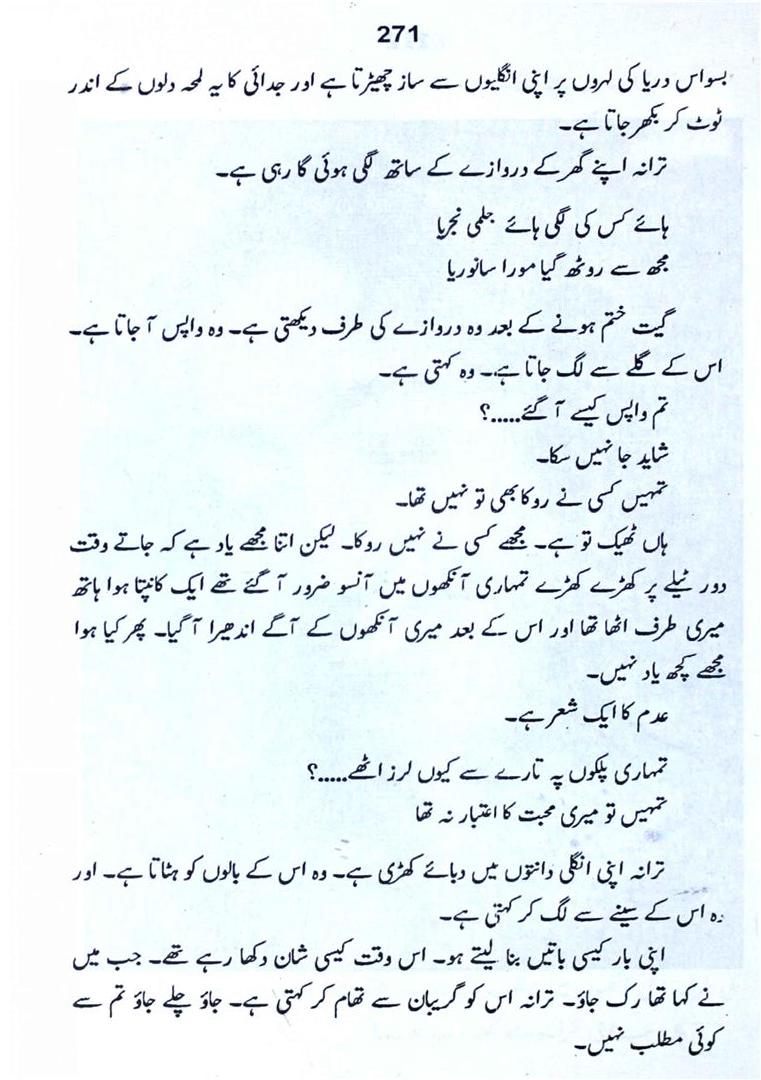 271
بسواس دریا کی لہروں پر اپنی انگلیوں سے ساز چھیڑتا ہے اور جدائی کا یہ لمحہ دلوں کے اندر
ٹوٹ کر بکھر جاتا ہے۔
ترانہ اپنے گھر کے دروازے کے ساتھ لگی ہوئی گا رہی ہے۔
ہائے کس کی لگی ہائے جلمی نجریا
مجھ سے روٹھ گیا مورا سانوریا
گیت ختم ہونے کے بعد وہ دروازے کی طرف دیکھتی ہے۔ وہ واپس آ جاتا ہے۔
اس کے گلے سے لگ جاتا ہے۔ وہ کہتی ہے۔
تم واپس کیسے آ گئے.....؟
شاید جا نہیں سکا۔
تمہیں کسی نے روکا بھی تو نہیں تھا۔
ہاں ٹھیک تو ہے۔ مجھے کسی نے نہیں روکا۔ لیکن اتنا مجھے یاد ہے کہ جاتے وقت
دور ٹیلے پر کھڑے کھڑے تمہاری آنکھوں میں آنسو ضرور آ گئے تھے ایک کانپتا ہوا ہاتھ
میری طرف اٹھا تھا اور اس کے بعد میری آنکھوں کے آگے اندھیرا آ گیا۔ پھر کیا ہوا
مجھے کچھ یاد نہیں۔
عدم کا ایک شعر ہے۔
تمہاری پلکوں پہ تارے سے کیوں لرز اٹھے.....؟
تمہیں تو میری محبت کا اعتبار نہ تھا
ترانہ اپنی انگلی دانتوں میں دبائے کھڑی ہے۔ وہ اس کے بالوں کو ہٹاتا ہے۔ اور
وہ اس کے سینے سے لگ کر کہتی ہے۔
اپنی بار کیسی باتیں بنا لیتے ہو۔ اس وقت کیسی شان دکھا رہے تھے۔ جب میں
نے کہا تھا رک جاؤ۔ ترانہ اس کو گریبان سے تھام کر کہتی ہے۔ جاؤ چلے جاؤ تم سے
کوئی مطلب نہیں۔